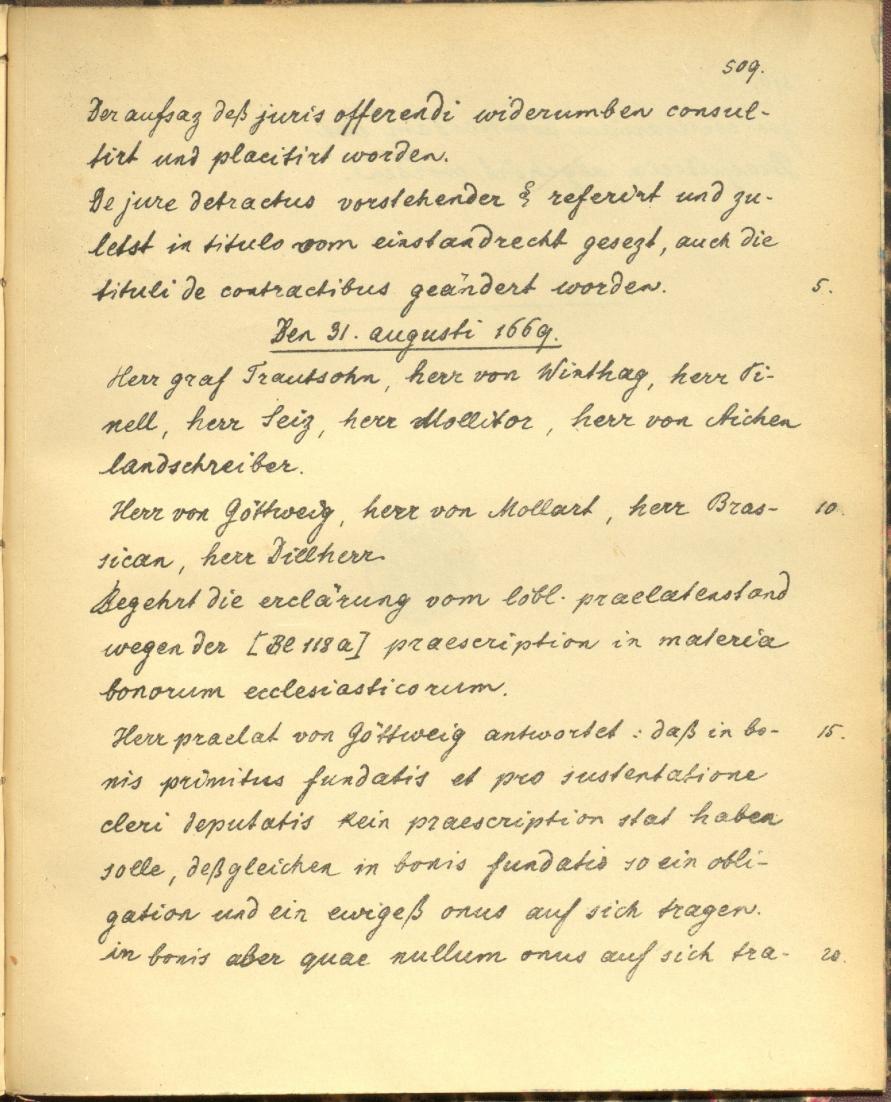 509.
Der aufsaz deß juris offerendi widerumben consul-
tirt und placitirt worden.
De jure detractus vorstehender § referirt und zu-
letst in titulo vom einstandrecht gesezt, auch die
tituli de contractibus geändert worden. 5.
Den 31. augusti 1669.
Herr graf Trautsohn, herr von Winthag, herr Pi-
nell, herr Seiz, herr Mollitor, herr von Aichen
landschreiber.
Herr von Göttweig, herr von Mollart, herr Bras- 10.
sican, herr Dillherr
Begehrt die erclärung vom löbl. praelatenstand
wegen der [Bl 118a] praescription in materia
bonorum ecclesiasticorum.
Herr praelat von Göttweig antwortet: daß in bo- 15.
nis primitus fundatis et pro sustentatione
cleri deputatis kein praescription stat haben
solle, deßgleichen in bonis fundatis so ein obli-
gation und ein ewigeß onus auf sich tragen.
in bonis aber quae nullum onus auf sich tra- 20.